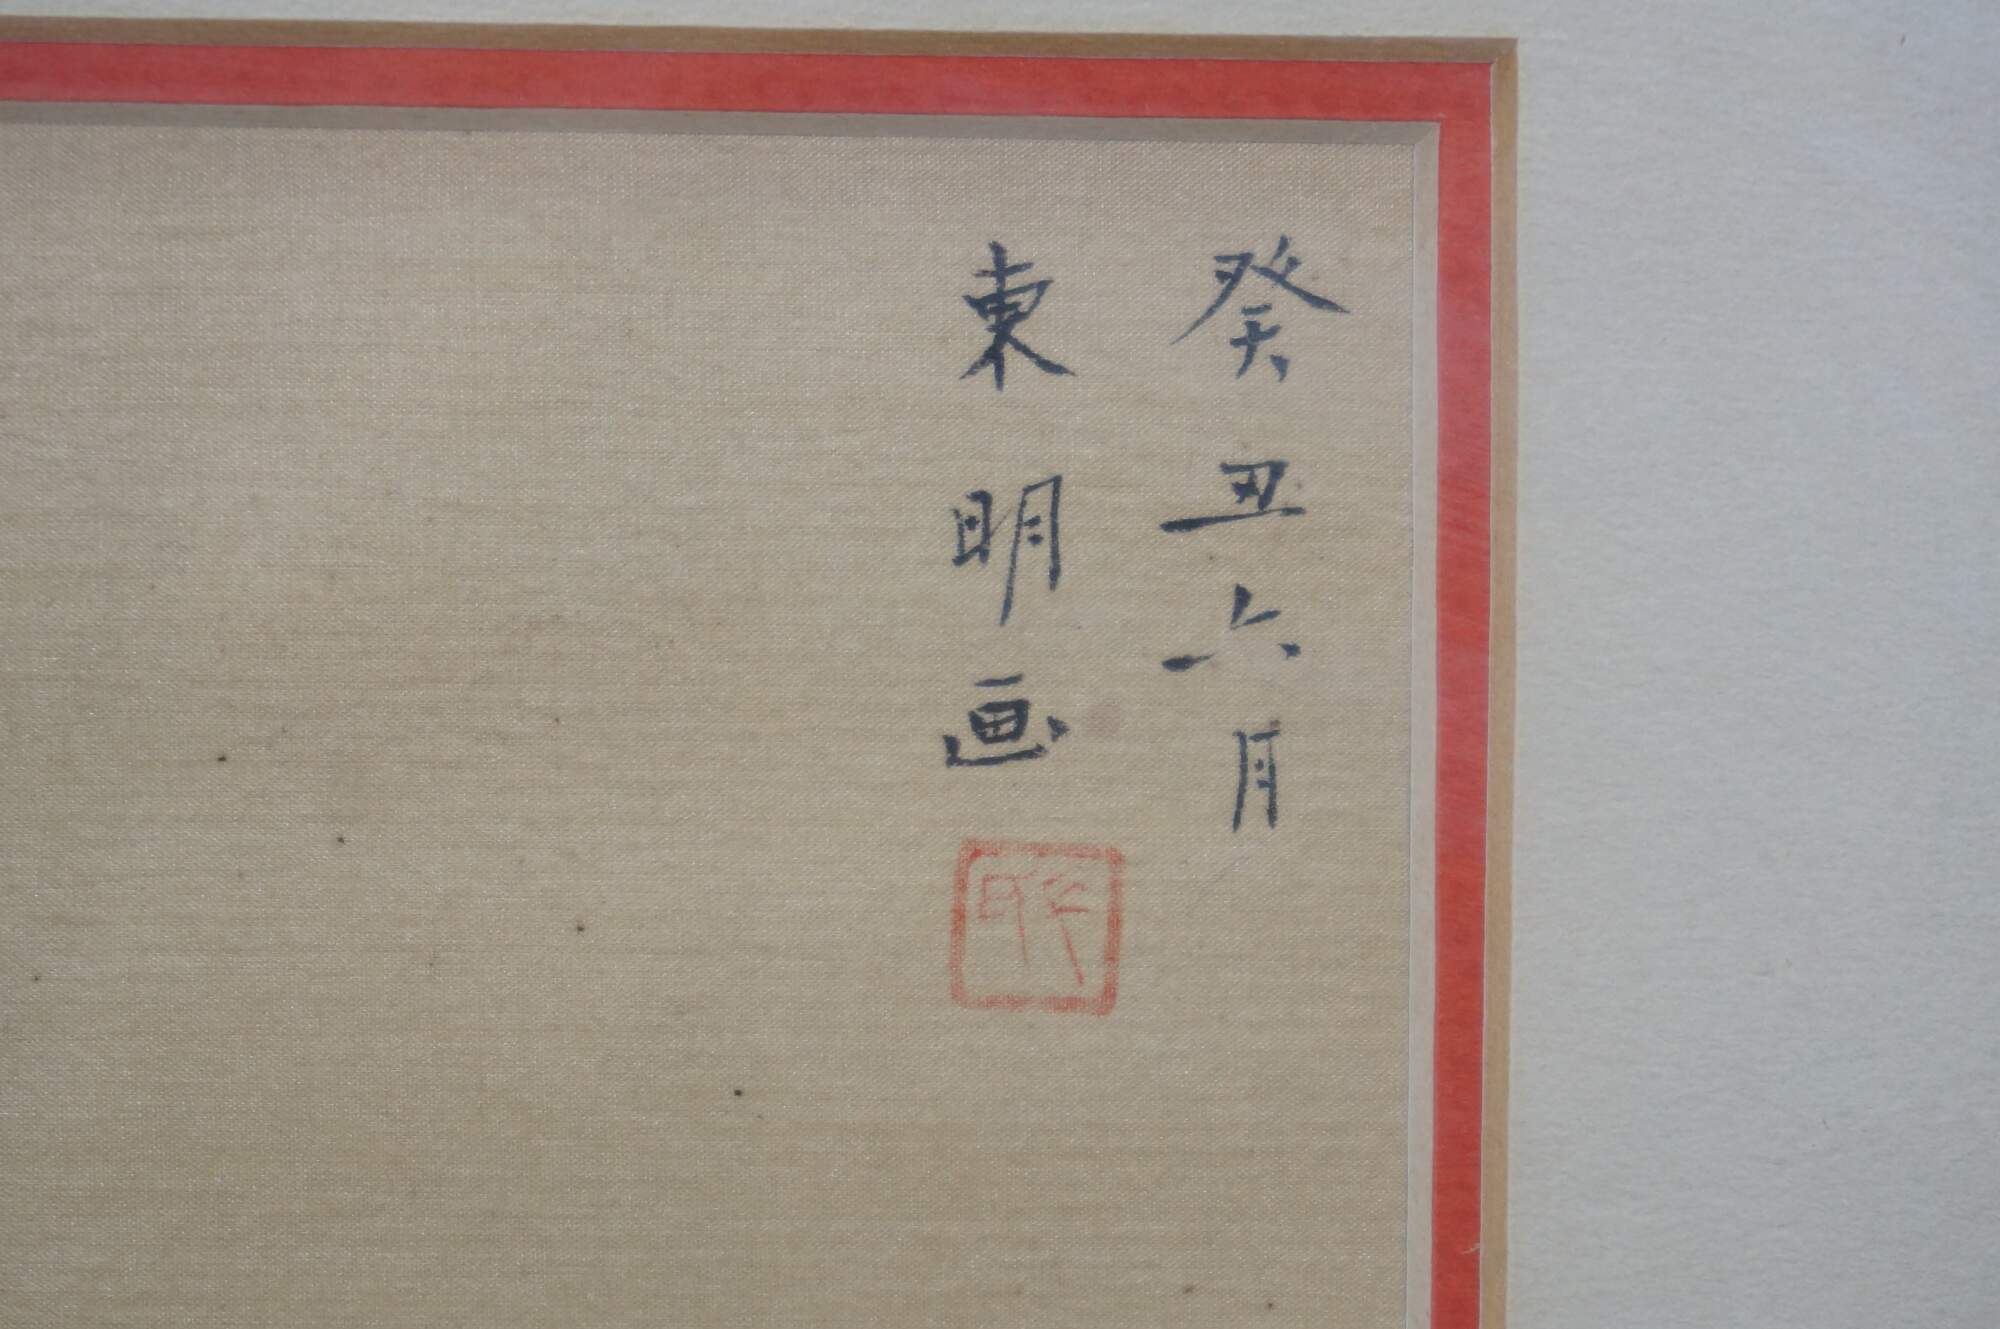 癸丑六月
東明画